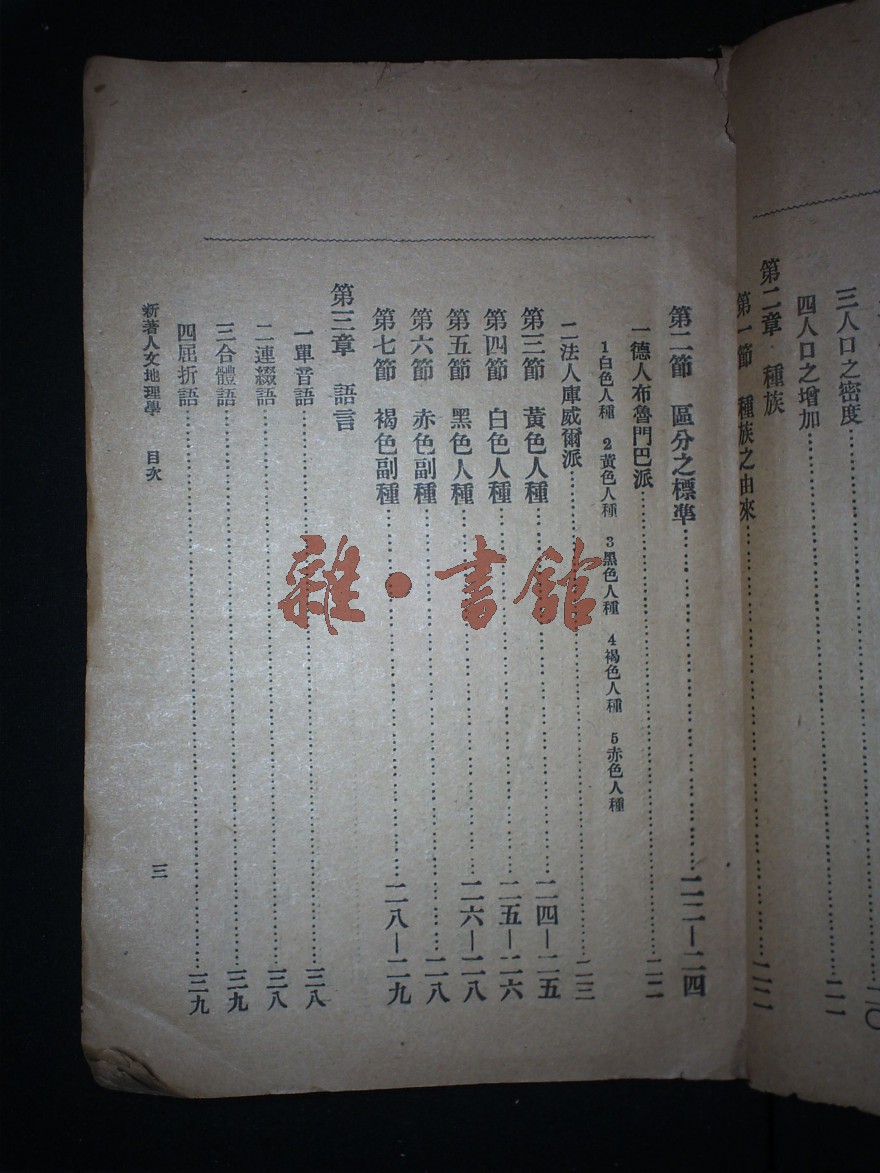 三人口之密度
四人口之增加 二一
第二章 種族
第一節 種族之由來 二二
第二節 區分之標準 二二—二四
一德人布魯門巴派 二二
1白色人種 2黃色人種 3黑色人種 4褐色人種 5赤色人種
二法人庫威爾派 二三
第三節 黃色人種 二四—二五
第四節 白色人種 二五—二六
第五節 黑色人種 二六—二八
第六節 赤色副種 二八
第七節 褐色副種 二八—二九
第三章 語言
一單音語 三八
二連綴語 三八
三合體語 三九
四屈折語 三九
新著人文地理學 目次 三
雜·書館